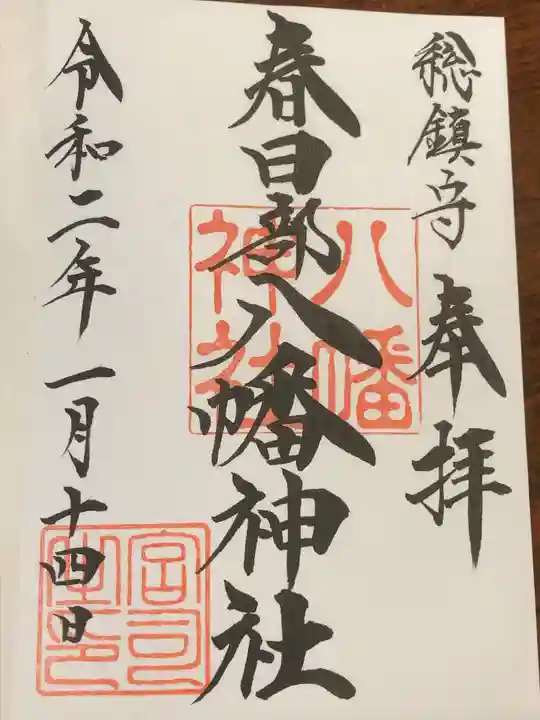 総鎮守 奉拝
春日部八幡神社
八幡
神社
令和二年一月十四日
宮司
之印